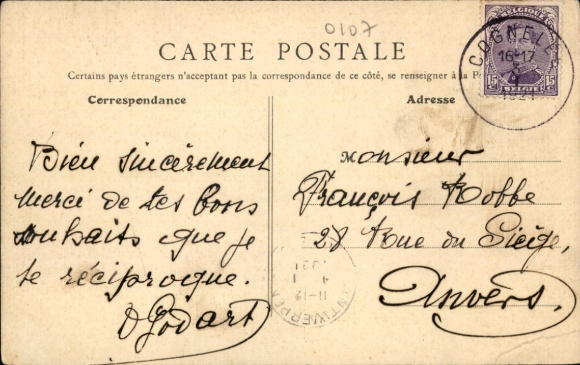 0107
CARTE POSTALE
Certains pays étrangers n'acceptant pas la correspondance de ce côté, se renseigner à la P
Correspondance
Adresse
BELGIQUE
COGNELÉE
16-17
15 15
BELGIË
1921
Bien sincèrement
merci de tes bons
souhaits que je
te réciproque.
D Godart
Monsieur
François Robbe
28 Rue du Siège,
Anvers.
ANTWERPEN
11-12
1
4
1921